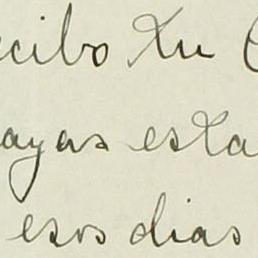 ecibo tu
ayas esta
esos dias